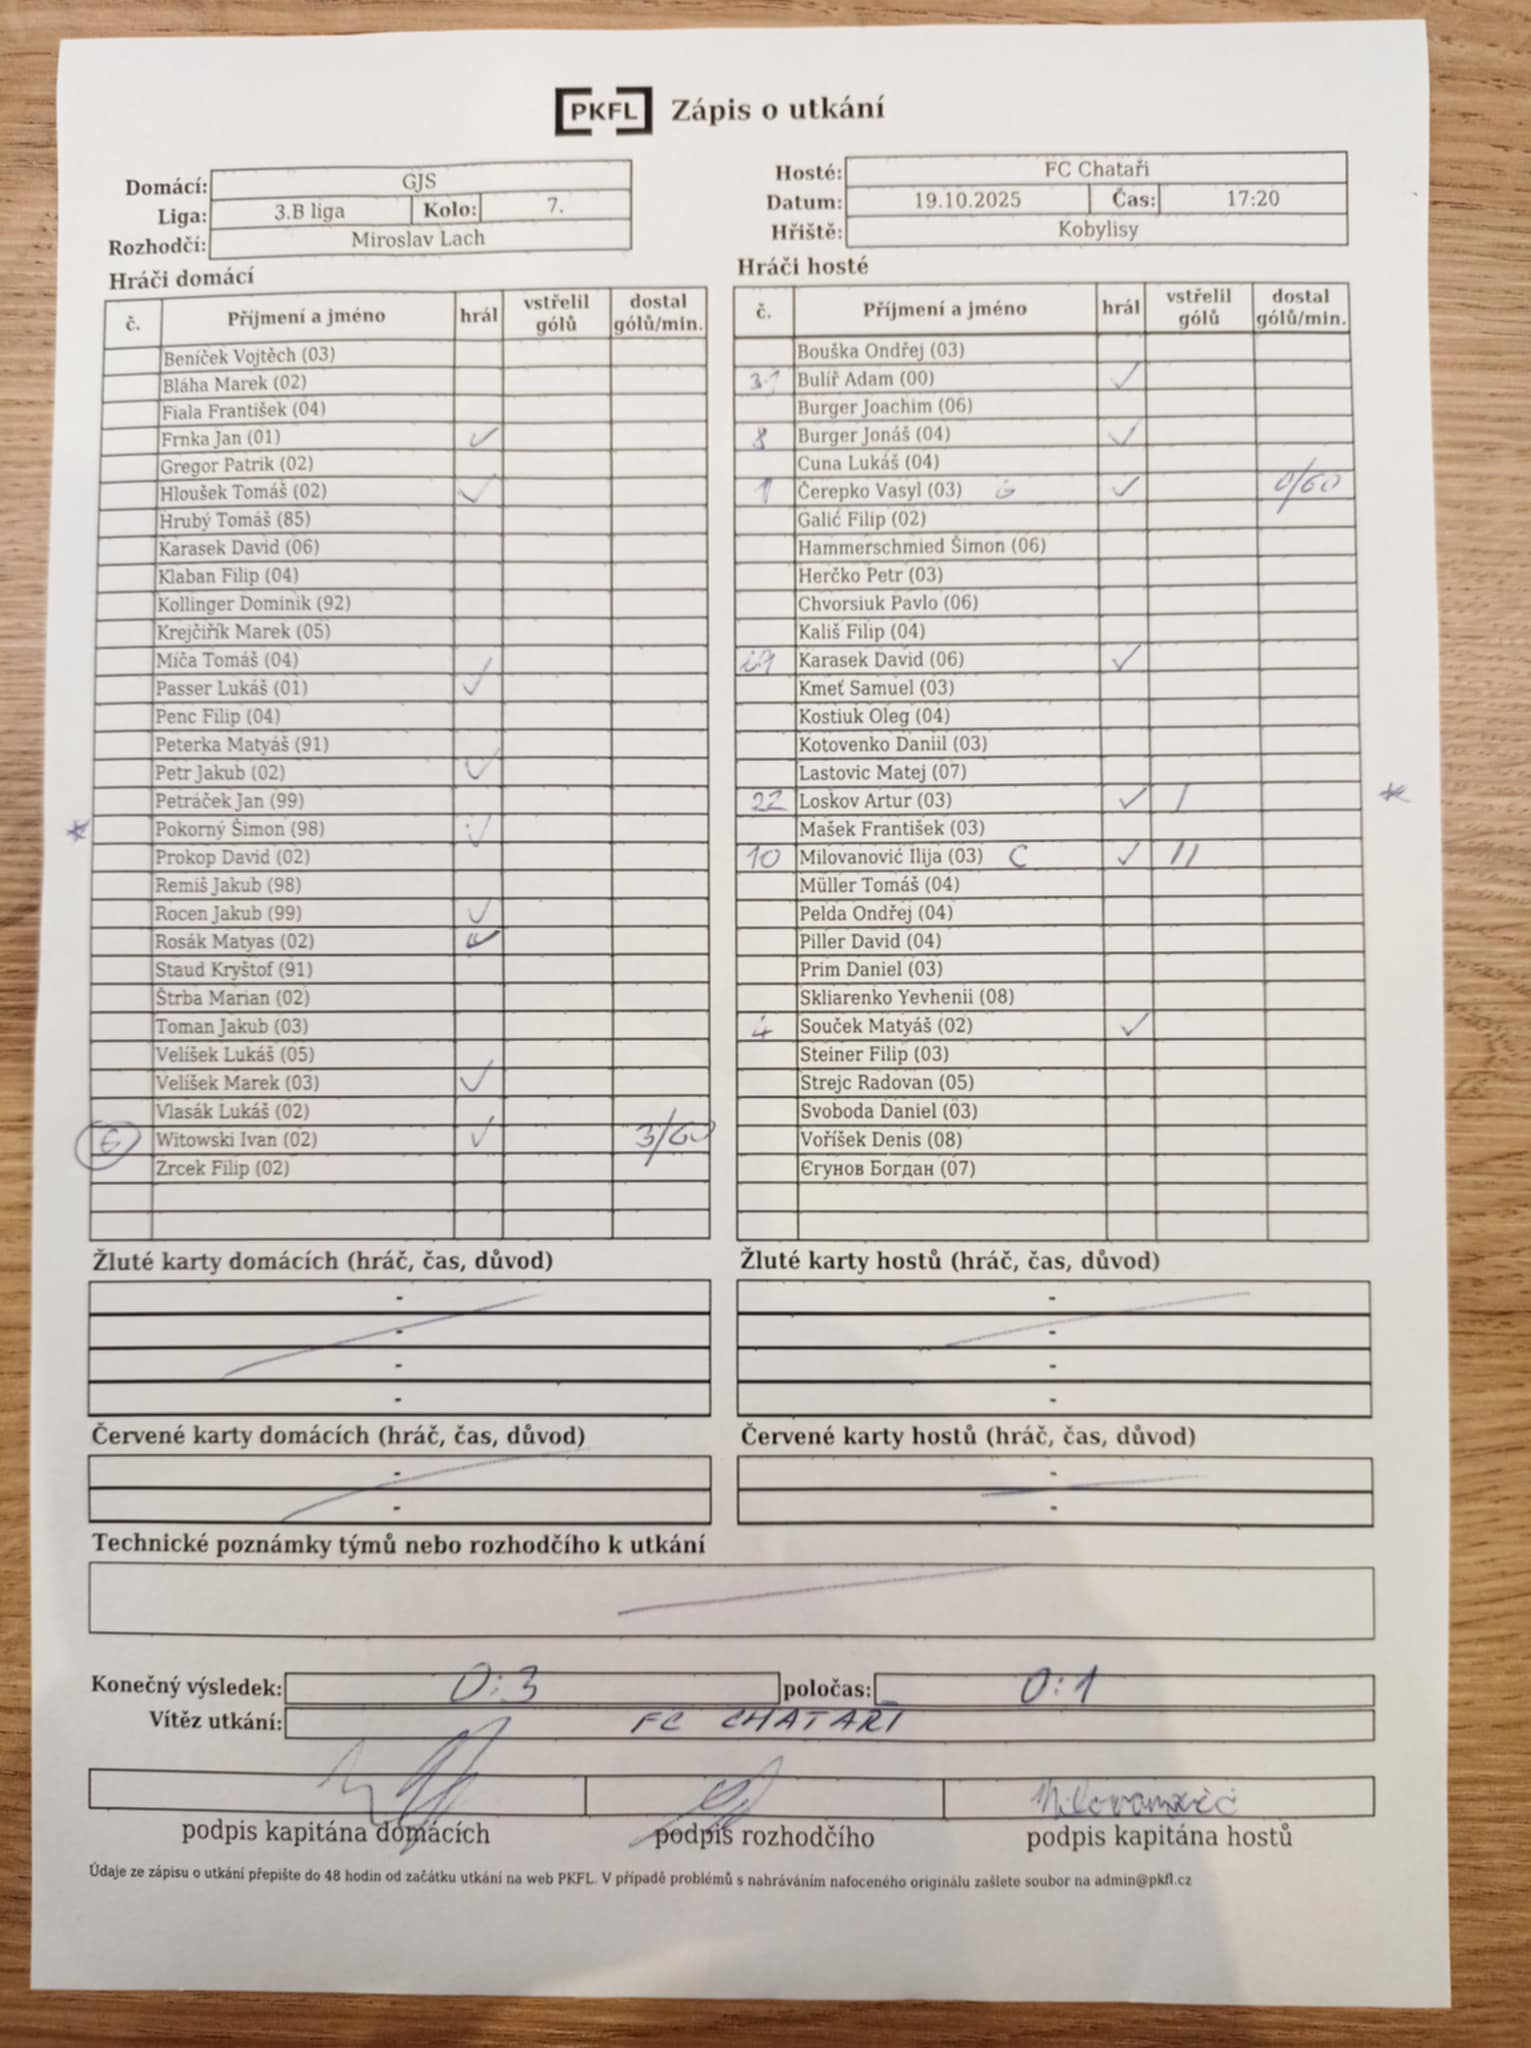 PKFL Zápis o utkání
Domácí: GJS
Liga: 3.B liga Kolo: 7.
Rozhodčí: Miroslav Lach
Hosté: FC Chataři
Datum: 19.10.2025 Čas: 17:20
Hřiště: Kobylisy
Hráči domácí
č. Příjmení a jméno hrál vstřelil gólů dostal gólů/min.
Beníček Vojtěch (03)
Bláha Marek (02)
Fiala František (04)
Frnka Jan (01) ✓
Gregor Patrik (02)
Hloušek Tomáš (02) ✓
Hrubý Tomáš (85)
Karasek David (06)
Klaban Filip (04)
Kollinger Dominik (92)
Krejčiřík Marek (05)
Míča Tomáš (04)
Passer Lukáš (01) ✓
Penc Filip (04)
Peterka Matyáš (91)
Petr Jakub (02) ✓
Petráček Jan (99)
* Pokorný Šimon (98) ✓
Prokop David (02)
Remiš Jakub (98)
Rocen Jakub (99) ✓
Rosák Matyas (02) ✓
Staud Kryštof (91)
Štrba Marian (02)
Toman Jakub (03)
Velíšek Lukáš (05)
Velíšek Marek (03) ✓
Vlasák Lukáš (02)
G Witowski Ivan (02) ✓ 3/60
Zrcek Filip (02)
Hráči hosté
č. Příjmení a jméno hrál vstřelil gólů dostal gólů/min.
Bouška Ondřej (03)
31 Bulíř Adam (00) ✓
Burger Joachim (06)
8 Burger Jonáš (04) ✓
Cuna Lukáš (04)
1 Čerepko Vasyl (03) G ✓ 0/60
Galić Filip (02)
Hammerschmied Šimon (06)
Herčko Petr (03)
Chvorsiuk Pavlo (06)
Kališ Filip (04)
Karasek David (06) ✓
Kmeť Samuel (03)
Kostiuk Oleg (04)
Kotovenko Daniil (03)
Lastovic Matej (07)
22 Loskov Artur (03) ✓ / *
Mašek František (03)
10 Milovanović Ilija (03) C ✓ //
Müller Tomáš (04)
Pelda Ondřej (04)
Piller David (04)
Prim Daniel (03)
Skliarenko Yevhenii (08)
4 Souček Matyáš (02) ✓
Steiner Filip (03)
Strejc Radovan (05)
Svoboda Daniel (03)
Voříšek Denis (08)
Єгунов Богдан (07)
Žluté karty domácích (hráč, čas, důvod)
-
-
-
-
Žluté karty hostů (hráč, čas, důvod)
-
-
-
-
Červené karty domácích (hráč, čas, důvod)
-
-
Červené karty hostů (hráč, čas, důvod)
-
-
Technické poznámky týmů nebo rozhodčího k utkání
Konečný výsledek: 0:3 poločas: 0:1
Vítěz utkání: FC CHATAŘI
Milovanović
podpis kapitána domácích podpis rozhodčího podpis kapitána hostů
Údaje ze zápisu o utkání přepište do 48 hodin od začátku utkání na web PKFL. V případě problémů s nahráváním nafoceného originálu zašlete soubor na admin@pkfl.cz